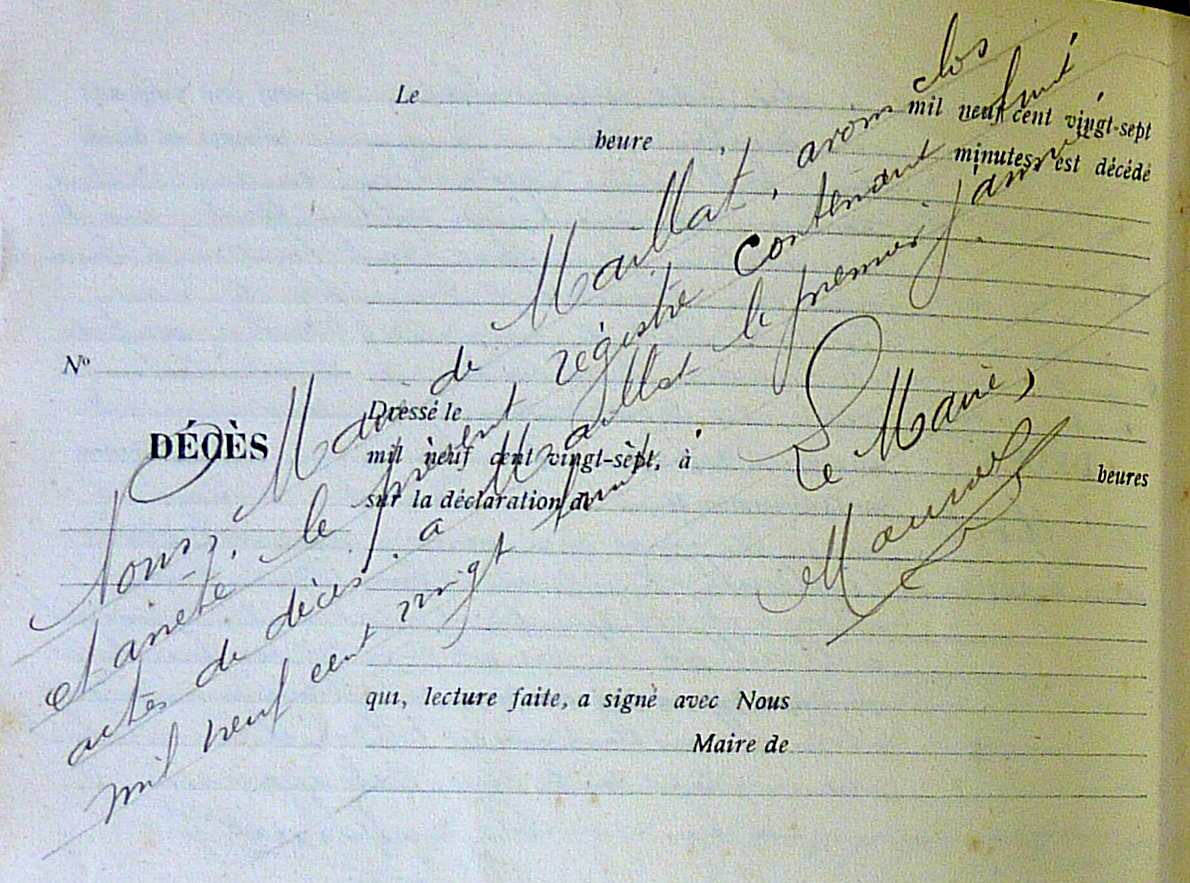 Le
mil neuf cent vingt-sept
heure
minutes, est décédé
Nº
DÉCÈS
Dressé le
mil neuf cent vingt-sept, à
heures
sur la déclaration de
qui, lecture faite, a signé avec Nous
Maire de
Nous, Maire de Maillat, avons clos
et arrêté, le présent régistre contenant huit
actes de décès. à Maillat le premier janvier
mil neuf cent vingt huit.
Le Maire,